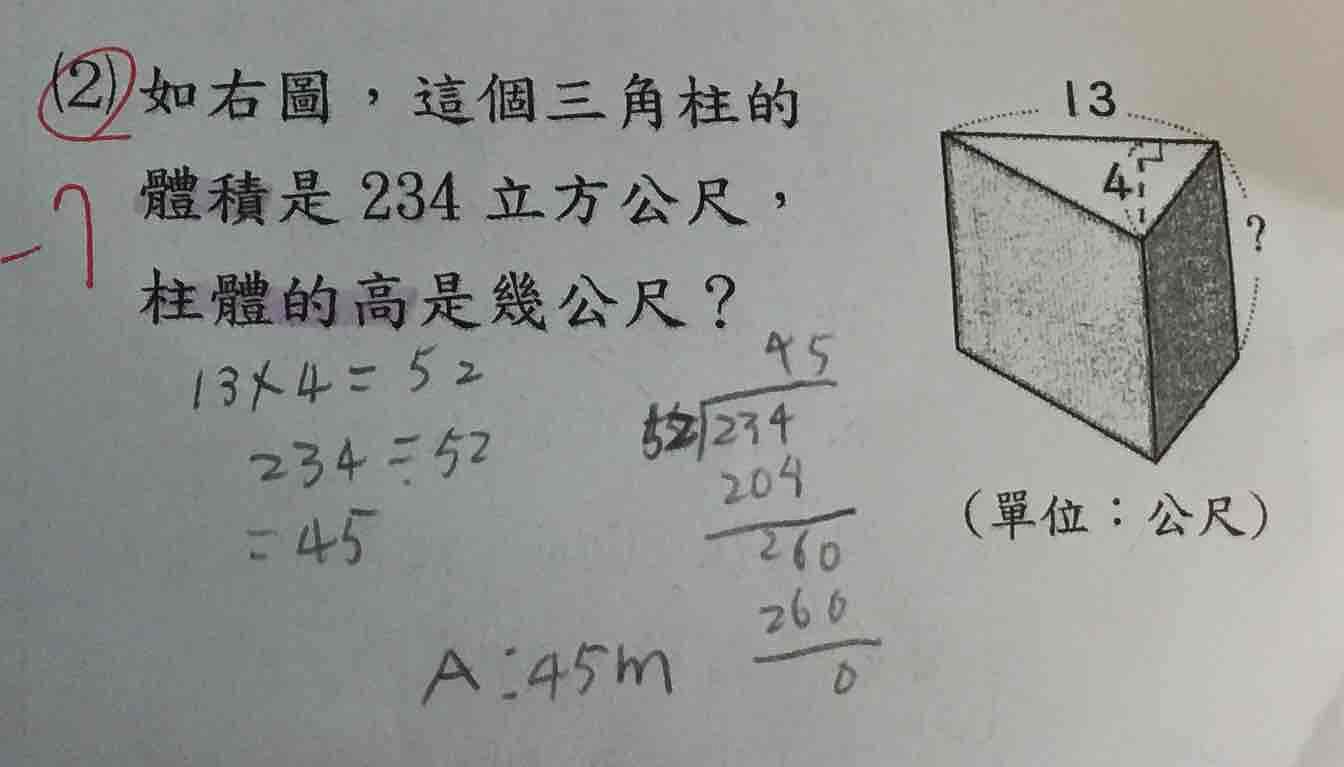 (2) 如右圖，這個三角柱的
體積是 234 立方公尺，
柱體的高是幾公尺？
-7
13
4
?
(單位：公尺)
13×4=52
234÷52
=45
45
52)234
204
260
260
0
A:45m